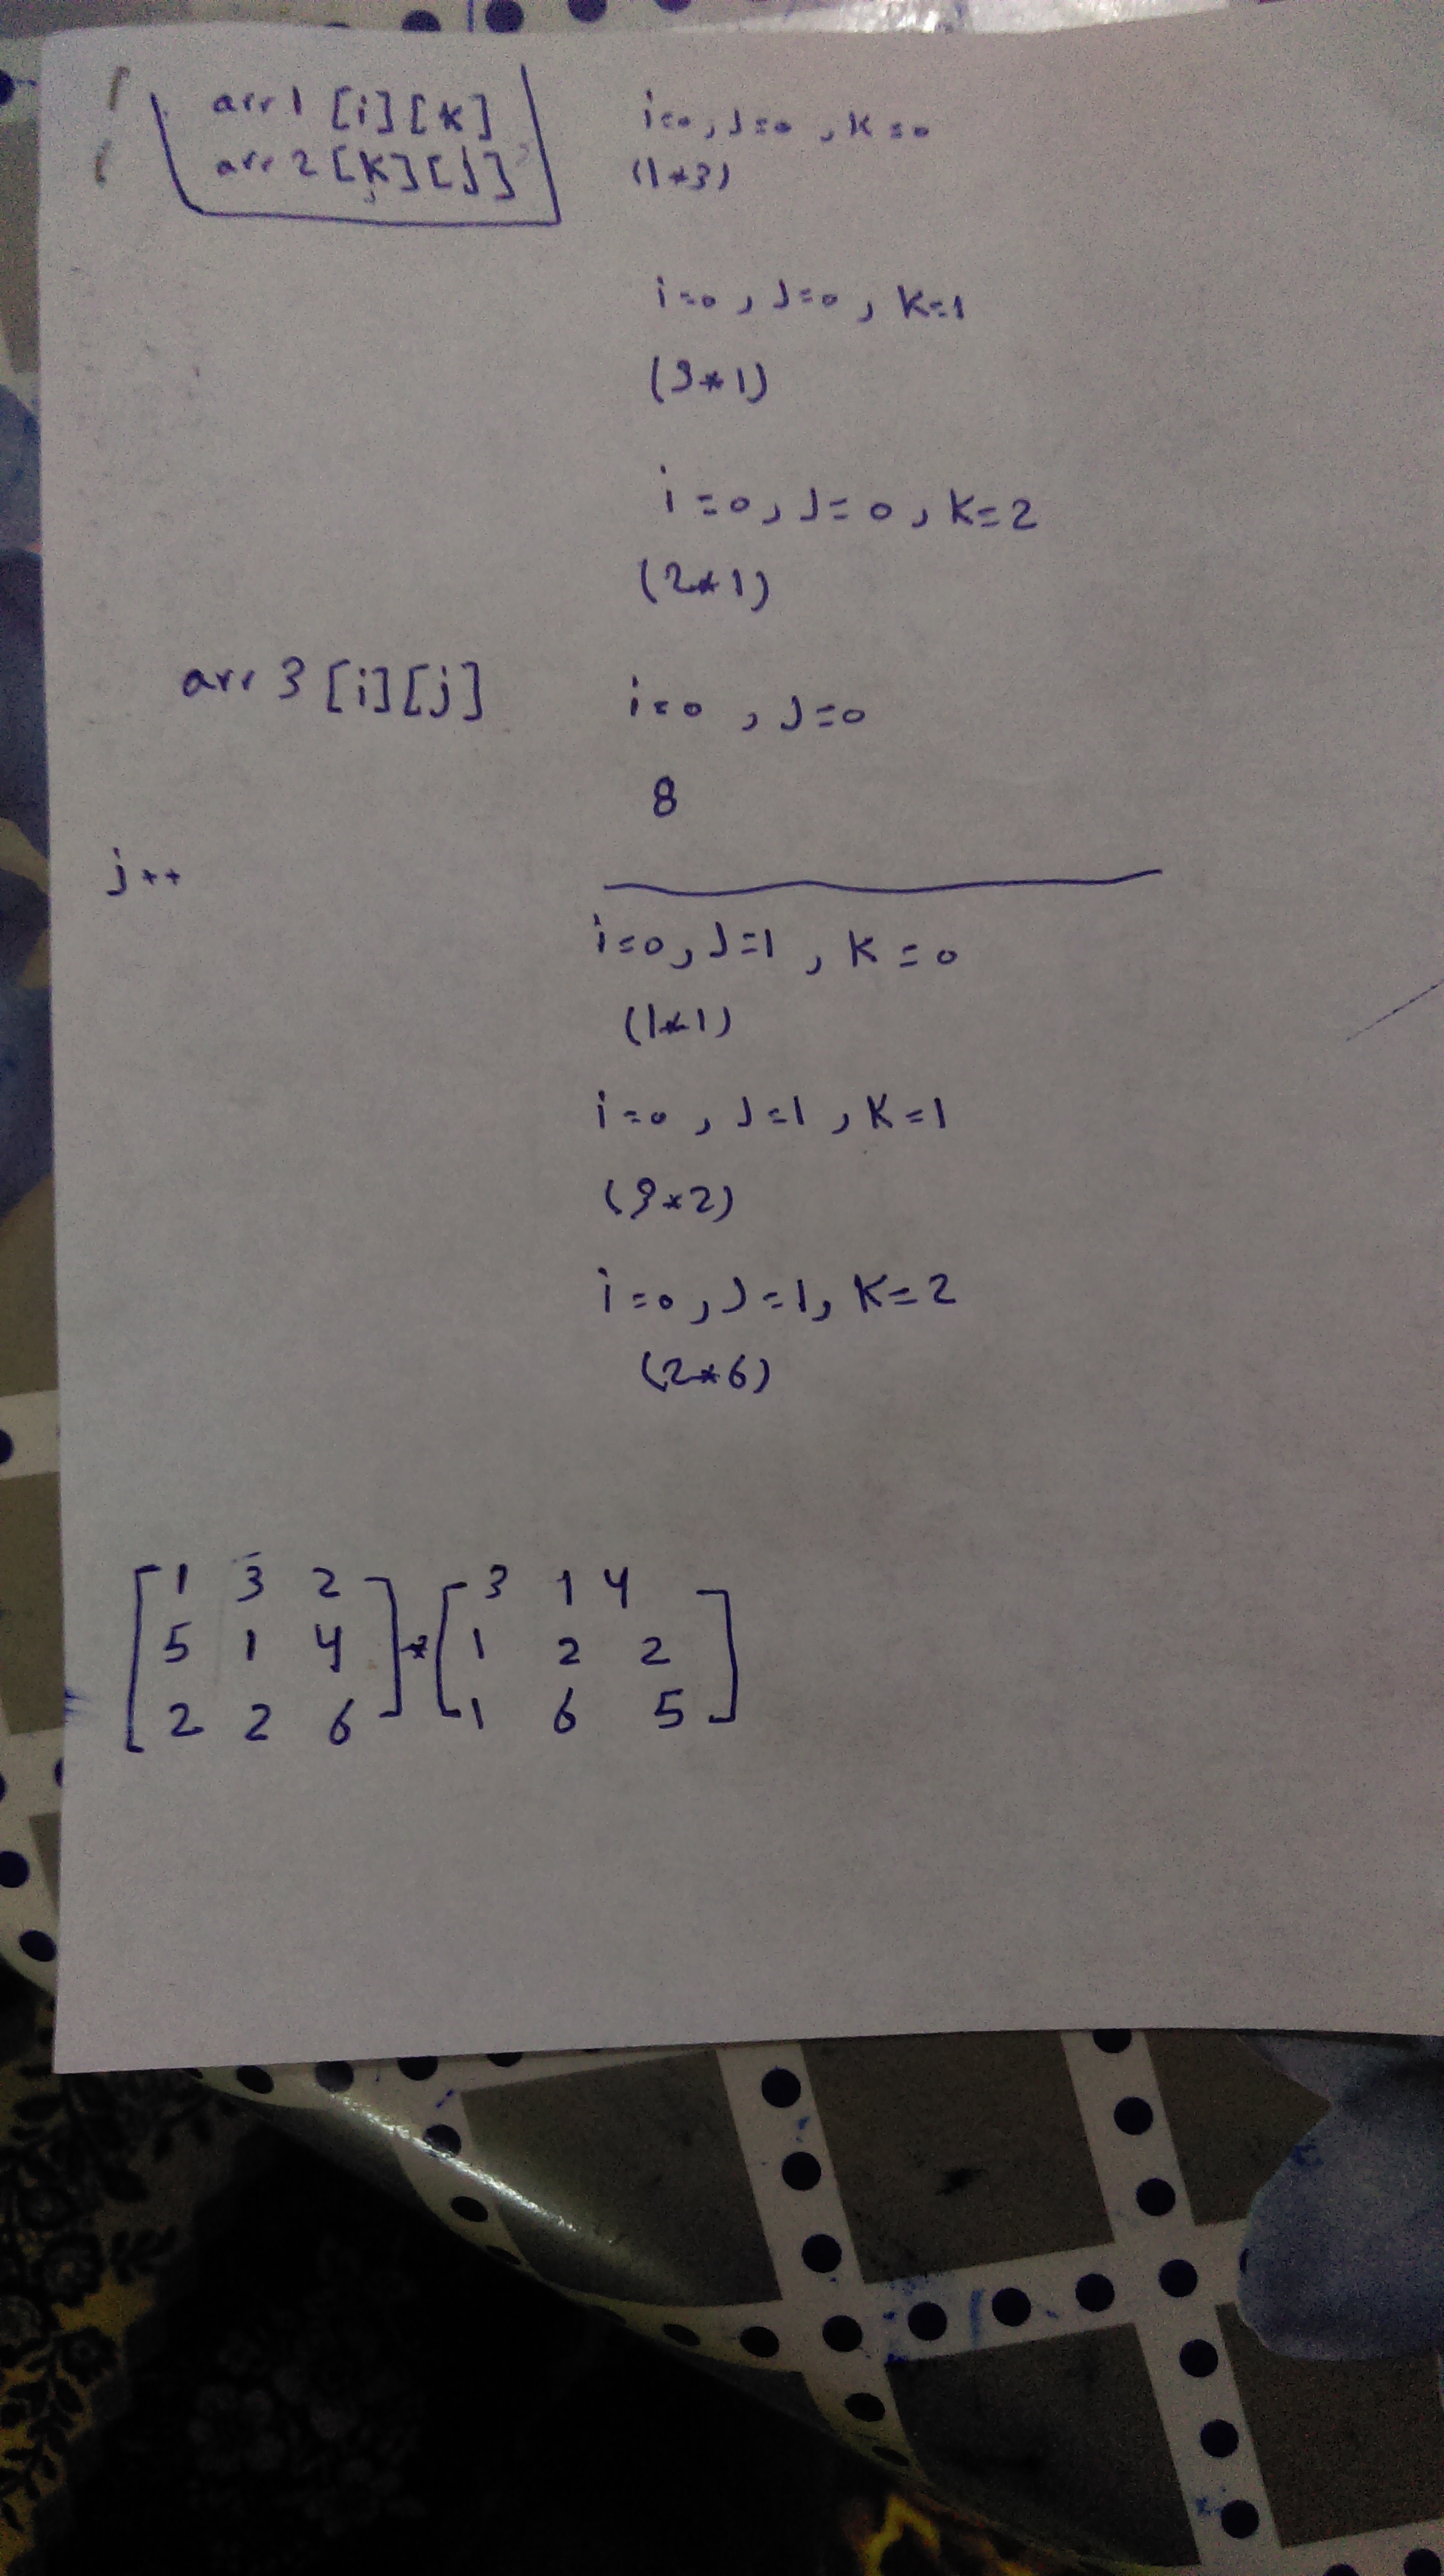 arr1 [i][k]
arr2 [k][j]
i=0, J=0, K=0
(1*3)
i=0, J=0, K=1
(3*1)
i=0, J=0, K=2
(2*1)
arr3 [i][j]
i=0, J=0
8
j++
i=0, J=1, K=0
(1*1)
i=0, J=1, K=1
(3*2)
i=0, J=1, K=2
(2*6)
[1 3 2 ] [3 1 4 ]
[5 1 4 ] * [1 2 2 ]
[2 2 6 ] [1 6 5 ]